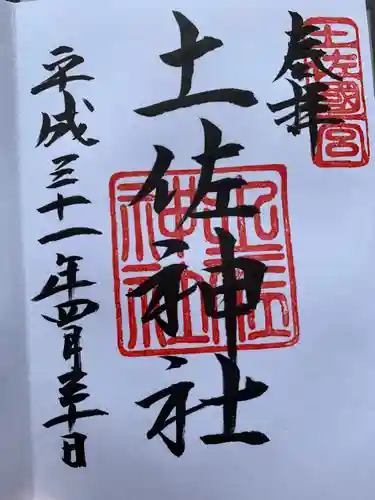 奉拝
土佐國一宮
土佐神社
土佐神社
平成三十一年四月三十日